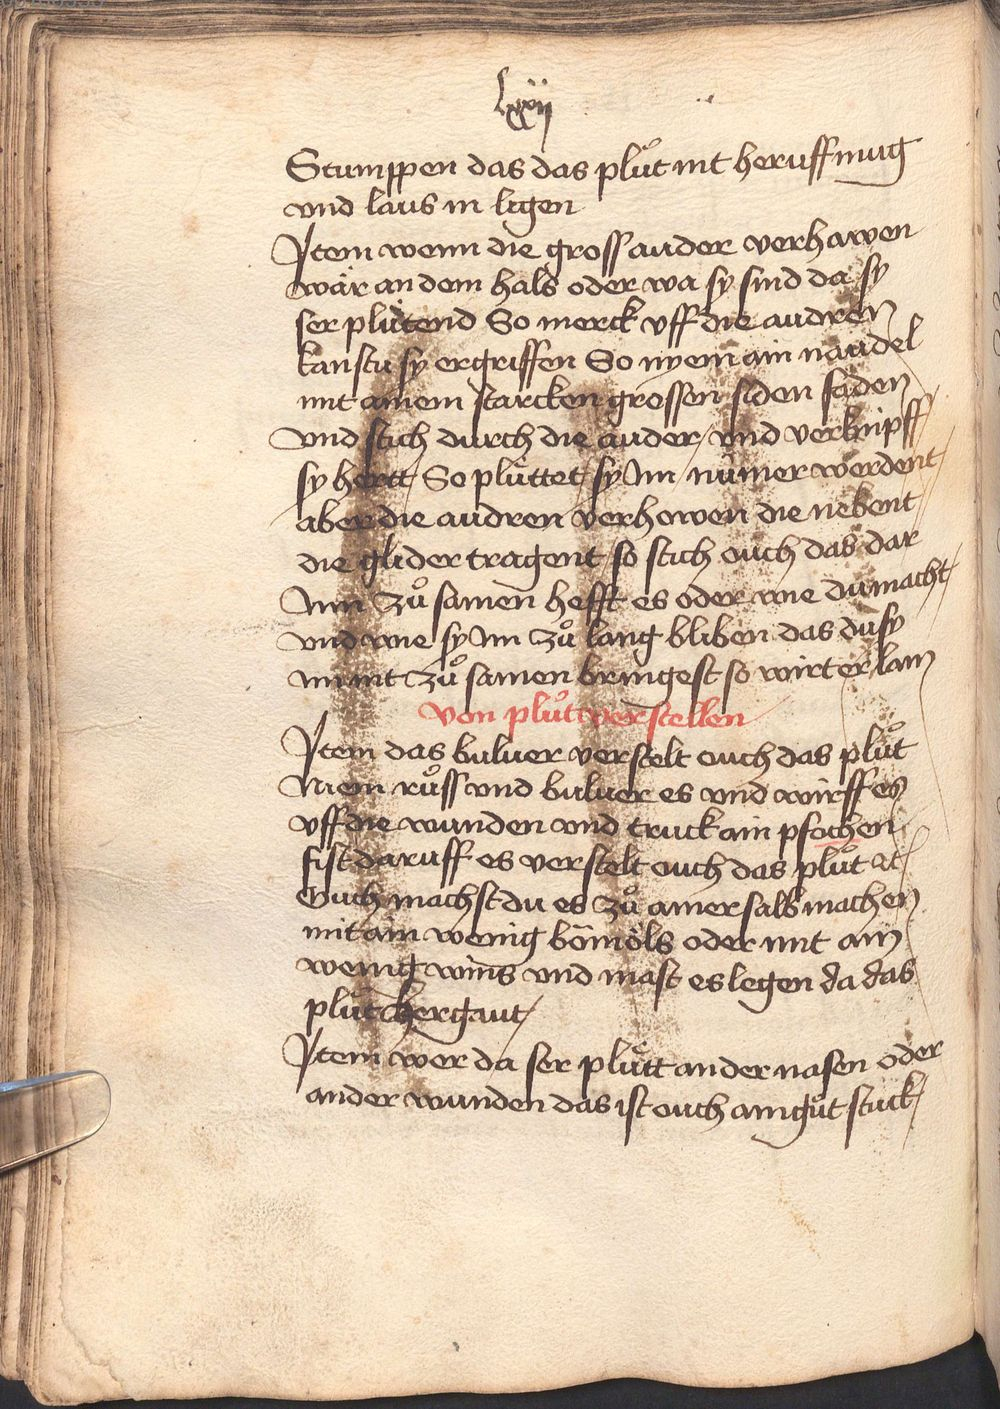 lxxij
Stumppen das das plůt nit heruss mug
vnd laus in ligen
Item wenn die gross auder verhawen
wär an dem hals oder wa sy sind da sy
ser plütend So merck vff die audren
kanstu sy ergriffen So nyem ain naudel
mit ainem starcken grossen siden faden
vnd stich durch die auder / vnd verknipff
sy hertt / So plůttet sy Im nümer werdent
aber die audren verhowen die nebent
die glider tragent / so stich ouch das dar
Inn zů samen hefft es oder wie du macht /
vnd wie sy Im zů lang bliben das du sy
im nit zů samen bringest so wirt er lam
von plůt verstellen
Item das buluer verstelt ouch das plůt
Niem růss vnd buluer es vnd wirff es
vff die wunden vnd truck ain pfochen
fist daruff es verstelt ouch das plůt zc
Ouch machst du es zů ainer salb machen
mit ain wenig bömöls oder mit ain
wenig wins vnd mast es legen da das
plůt hergaut /
Item wer da ser plůtt an der nasen oder
an der wunden das ist ouch ain gůt stuck /